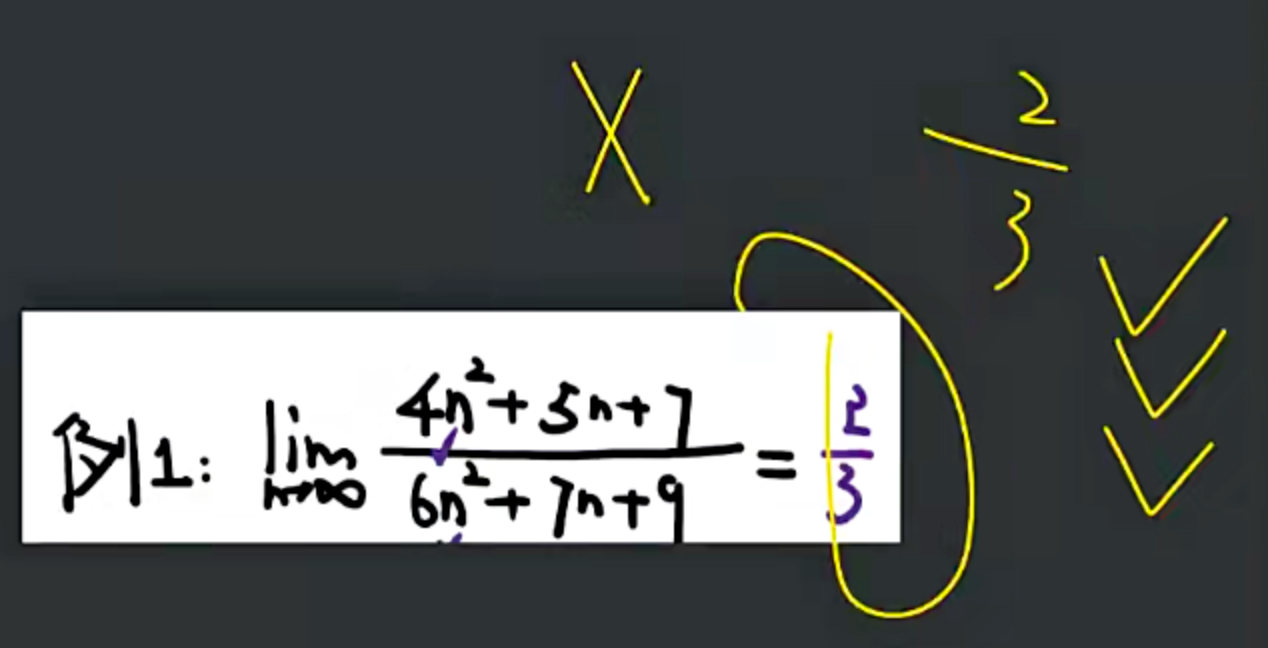 X
2/3
例1: lim_{n→∞} (4n²+5n+7)/(6n²+7n+9) = 2/3